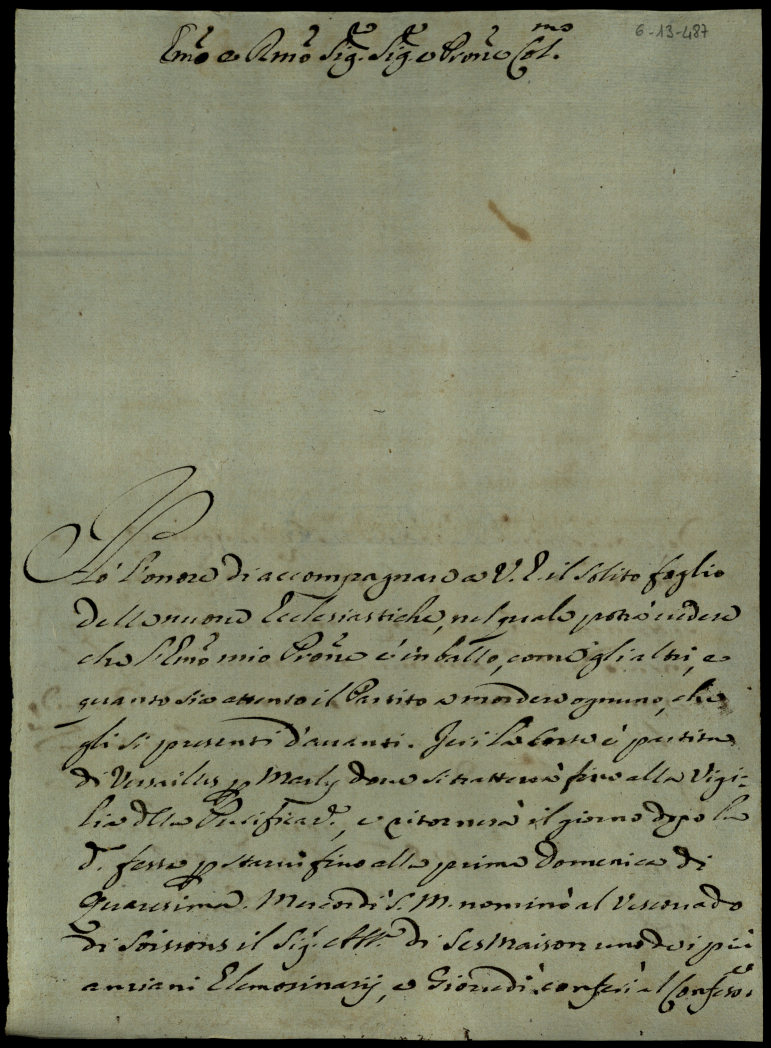 6-13-487
Em͂o e Rm͂o Sig.r Sig.r e Pron͂e Col.mo
Hò l'onore di accompagnare a V. E. il solito foglio
delle nuove Ecclesiastiche, nel quale potrà vedere
che l'Em͂o mio Pron͂e è in ballo, com'egli altri, e
quanto sia attento il Partito a mordere ognuno, che
gli si presenti d'avanti. Jeri la Corte è partita
di Versailles p Marly dove si tratterrà fino alla Vigi-
lia della Purificaz.e, e ritornerà il giorno dopo la
d.a festa p starvi fino alla prima Domenica di
Quaresima. Mercordì S. M. nominò al Vescovado
di Soissons il Sig.r Ab.e di SesMaison uno dei più
anziani Elemosinarij, e Giovedì conferì al Confesso-